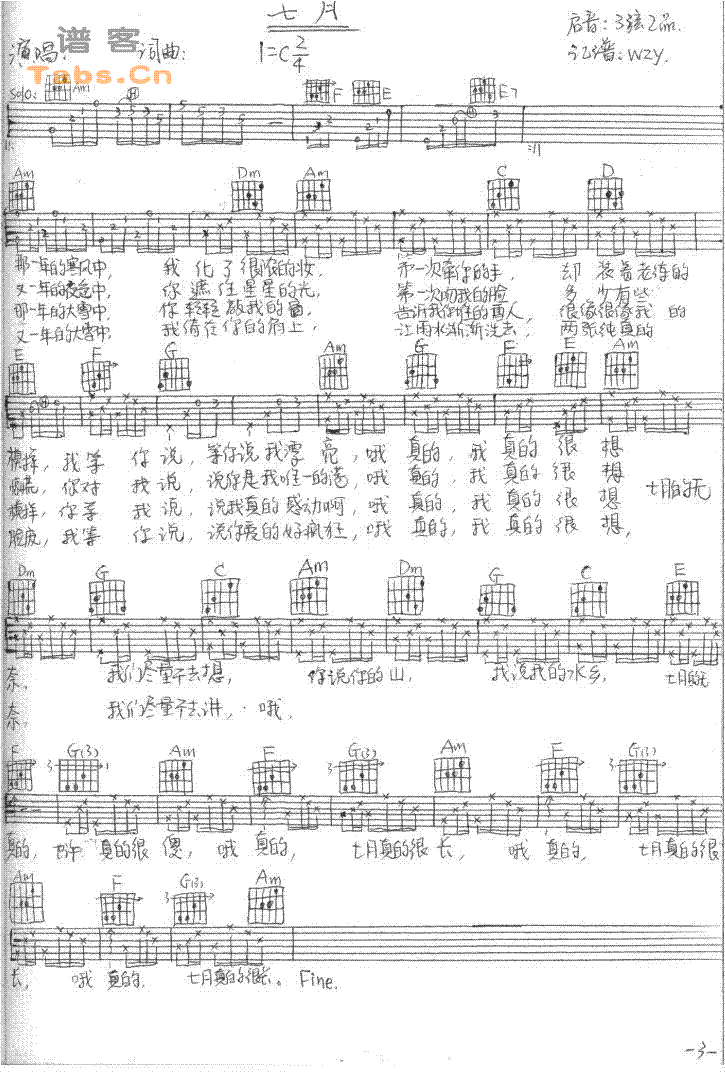 七月
启音：3弦2品.
演唱： 词曲： 1=C 2/4
记谱：wzy.
谱客
Tabs.Cn
Solo: Am F E E7
Am Dm Am C D
那一年的寒风中, 我化了很浓的妆, 第一次牵你的手, 却装着老练的
又一年的夜色中, 你遮住星星的光, 第一次吻我的脸, 多少有些
那一年的大雪中, 你轻轻敲我的窗, 告诉我你唯的两人, 很像很像我的
又一年的大雪中, 我倚在你的肩上, 让雨水渐渐洗去, 两张纯真的
E F G Am G F E Am
模样, 我等你说, 等你说我漂亮, 哦真的, 我真的很想
慌, 你对我说, 说你是我唯一的 哦真的, 我真的很想 七月的无
模样, 你等我说, 说我真的感动啊, 哦真的, 我真的很想
脸庞, 我等你说, 说你爱的好疯狂, 哦真的, 我真的很想,
Dm G C Am Dm G C E
奈, 我们尽量不去想, 你说你的山, 我说我的水乡, 七月的无
奈, 我们尽量不去讲, 哦,
F G(3) Am F G(3) Am F G(3)
真的, 也许真的很傻, 哦真的, 七月真的很长, 哦真的, 七月真的很
Am F G(3) Am
长, 哦真的, 七月真的很长。Fine.
-3-